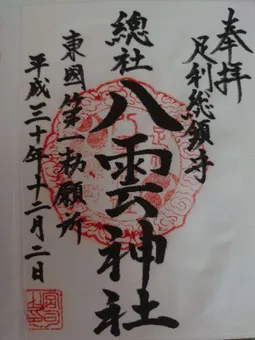 奉拝
足利総鎮守
總社
八雲神社
東國第一勅願所
平成三十年十二月二日